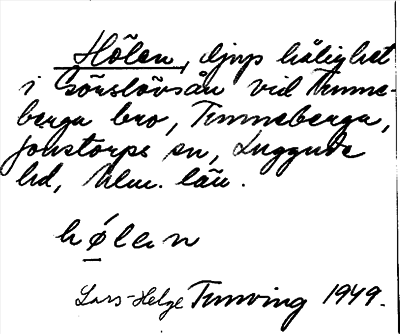 Hölen, djup hålighet
i Görslövsån vid Tunne-
berga bro, Tunneberga,
Jonstorps sn, Luggude
hd, Mlm. län.
hølen
Lars-Helge Tunving 1949.